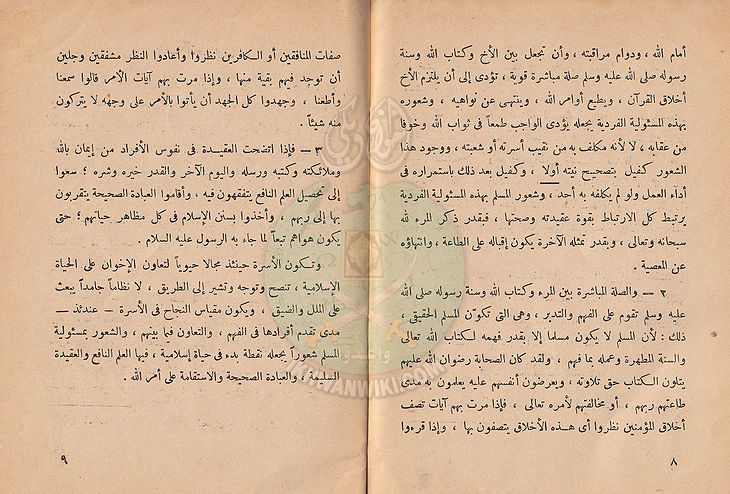 أمام الله ، ودوام مراقبته ، وأن تجعل بين الأخ وكتاب الله وسنة
رسوله صلى الله عليه وسلم صلة مباشرة قوية ، تؤدى إلى أن يلتزم الأخ
أخلاق القرآن ، ويطيع أوامر الله ، وينتهى عن نواهيه ، وشعوره
بهذه المسئولية الفردية يجعله يؤدى الواجب طمعاً فى ثواب الله وخوفا
من عقابه ، لا لأنه مكلف به من نقيب أسرته أو شعبته ، ووجود هذا
الشعور كفيل بتصحيح نيته أولا ، وكفيل بعد ذلك باستمراره فى
أداء العمل ولو لم يكلفه به أحد ، وشعور المسلم بهذه المسئولية الفردية
يرتبط كل الارتباط بقوة عقيدته وصحتها ، فبقدر ذكر المرء لله
سبحانه وتعالى ، وبقدر تمثله الآخرة يكون إقباله على الطاعة ، وانتهاؤه
عن المعصية .
٢ — والصلة المباشرة بين المرء وكتاب الله وسنة رسوله صلى الله
عليه وسلم تقوم على الفهم والتدبر ، وهى التى تكوّن المسلم الحقيقى ،
ذلك : لأن المسلم لا يكون مسلما إلا بقدر فهمه لكتاب الله تعالى
والسنة المطهرة وعمله بما فهم ، ولقد كان الصحابة رضوان الله عليهم
يتلون الكتاب حق تلاوته ، ويعرضون أنفسهم عليه يعلمون به مدى
طاعتهم ربهم ، أو مخالفتهم لأمره تعالى ، فإذا مرت بهم آيات تصف
أخلاق المؤمنين نظروا أى هذه الأخلاق يتصفون بها ، وإذا قرءوا
٨
صفات المنافقين أو الكافرين نظروا وأعادوا النظر مشفقين وجلين
أن توجد فيهم بقية منها ، وإذا مرت بهم آيات الأمر قالوا سمعنا
وأطعنا ، وجهدوا كل الجهد أن يأتوا بالأمر على وجهه لا يتركون
منه شيئاً .
٣ — فإذا اتضحت العقيدة فى نفوس الأفراد من إيمان بالله
وملائكته وكتبه ورسله واليوم الآخر والقدر خيره وشره ؛ سعوا
إلى تحصيل العلم النافع يتفقهون فيه ، وأقاموا العبادة الصحيحة يتقربون
بها إلى ربهم ، وأخذوا بسنن الإسلام فى كل مظاهر حياتهم ؛ حتى
يكون هواهم تبعاً لما جاء به الرسول عليه السلام .
وتكون الأسرة حينئذ مجالا حيوياً لتعاون الإخوان على الحياة
الإسلامية ، تنصح وتوجه وتشير إلى الطريق ، لا نظاماً جامداً يبعث
على الملل والضيق ، ويكون مقياس النجاح فى الأسرة — عندئذ —
مدى تقدم أفرادها فى الفهم ، والتعاون فيما بينهم ، والشعور بمسئولية
المسلم شعوراً يجعله نقطة بدء فى حياة إسلامية ، فيها العلم النافع والعقيدة
السليمة ، والعبادة الصحيحة والاستقامة على أمر الله .
٩
وأعدوا
IKHWANWIKI.COM